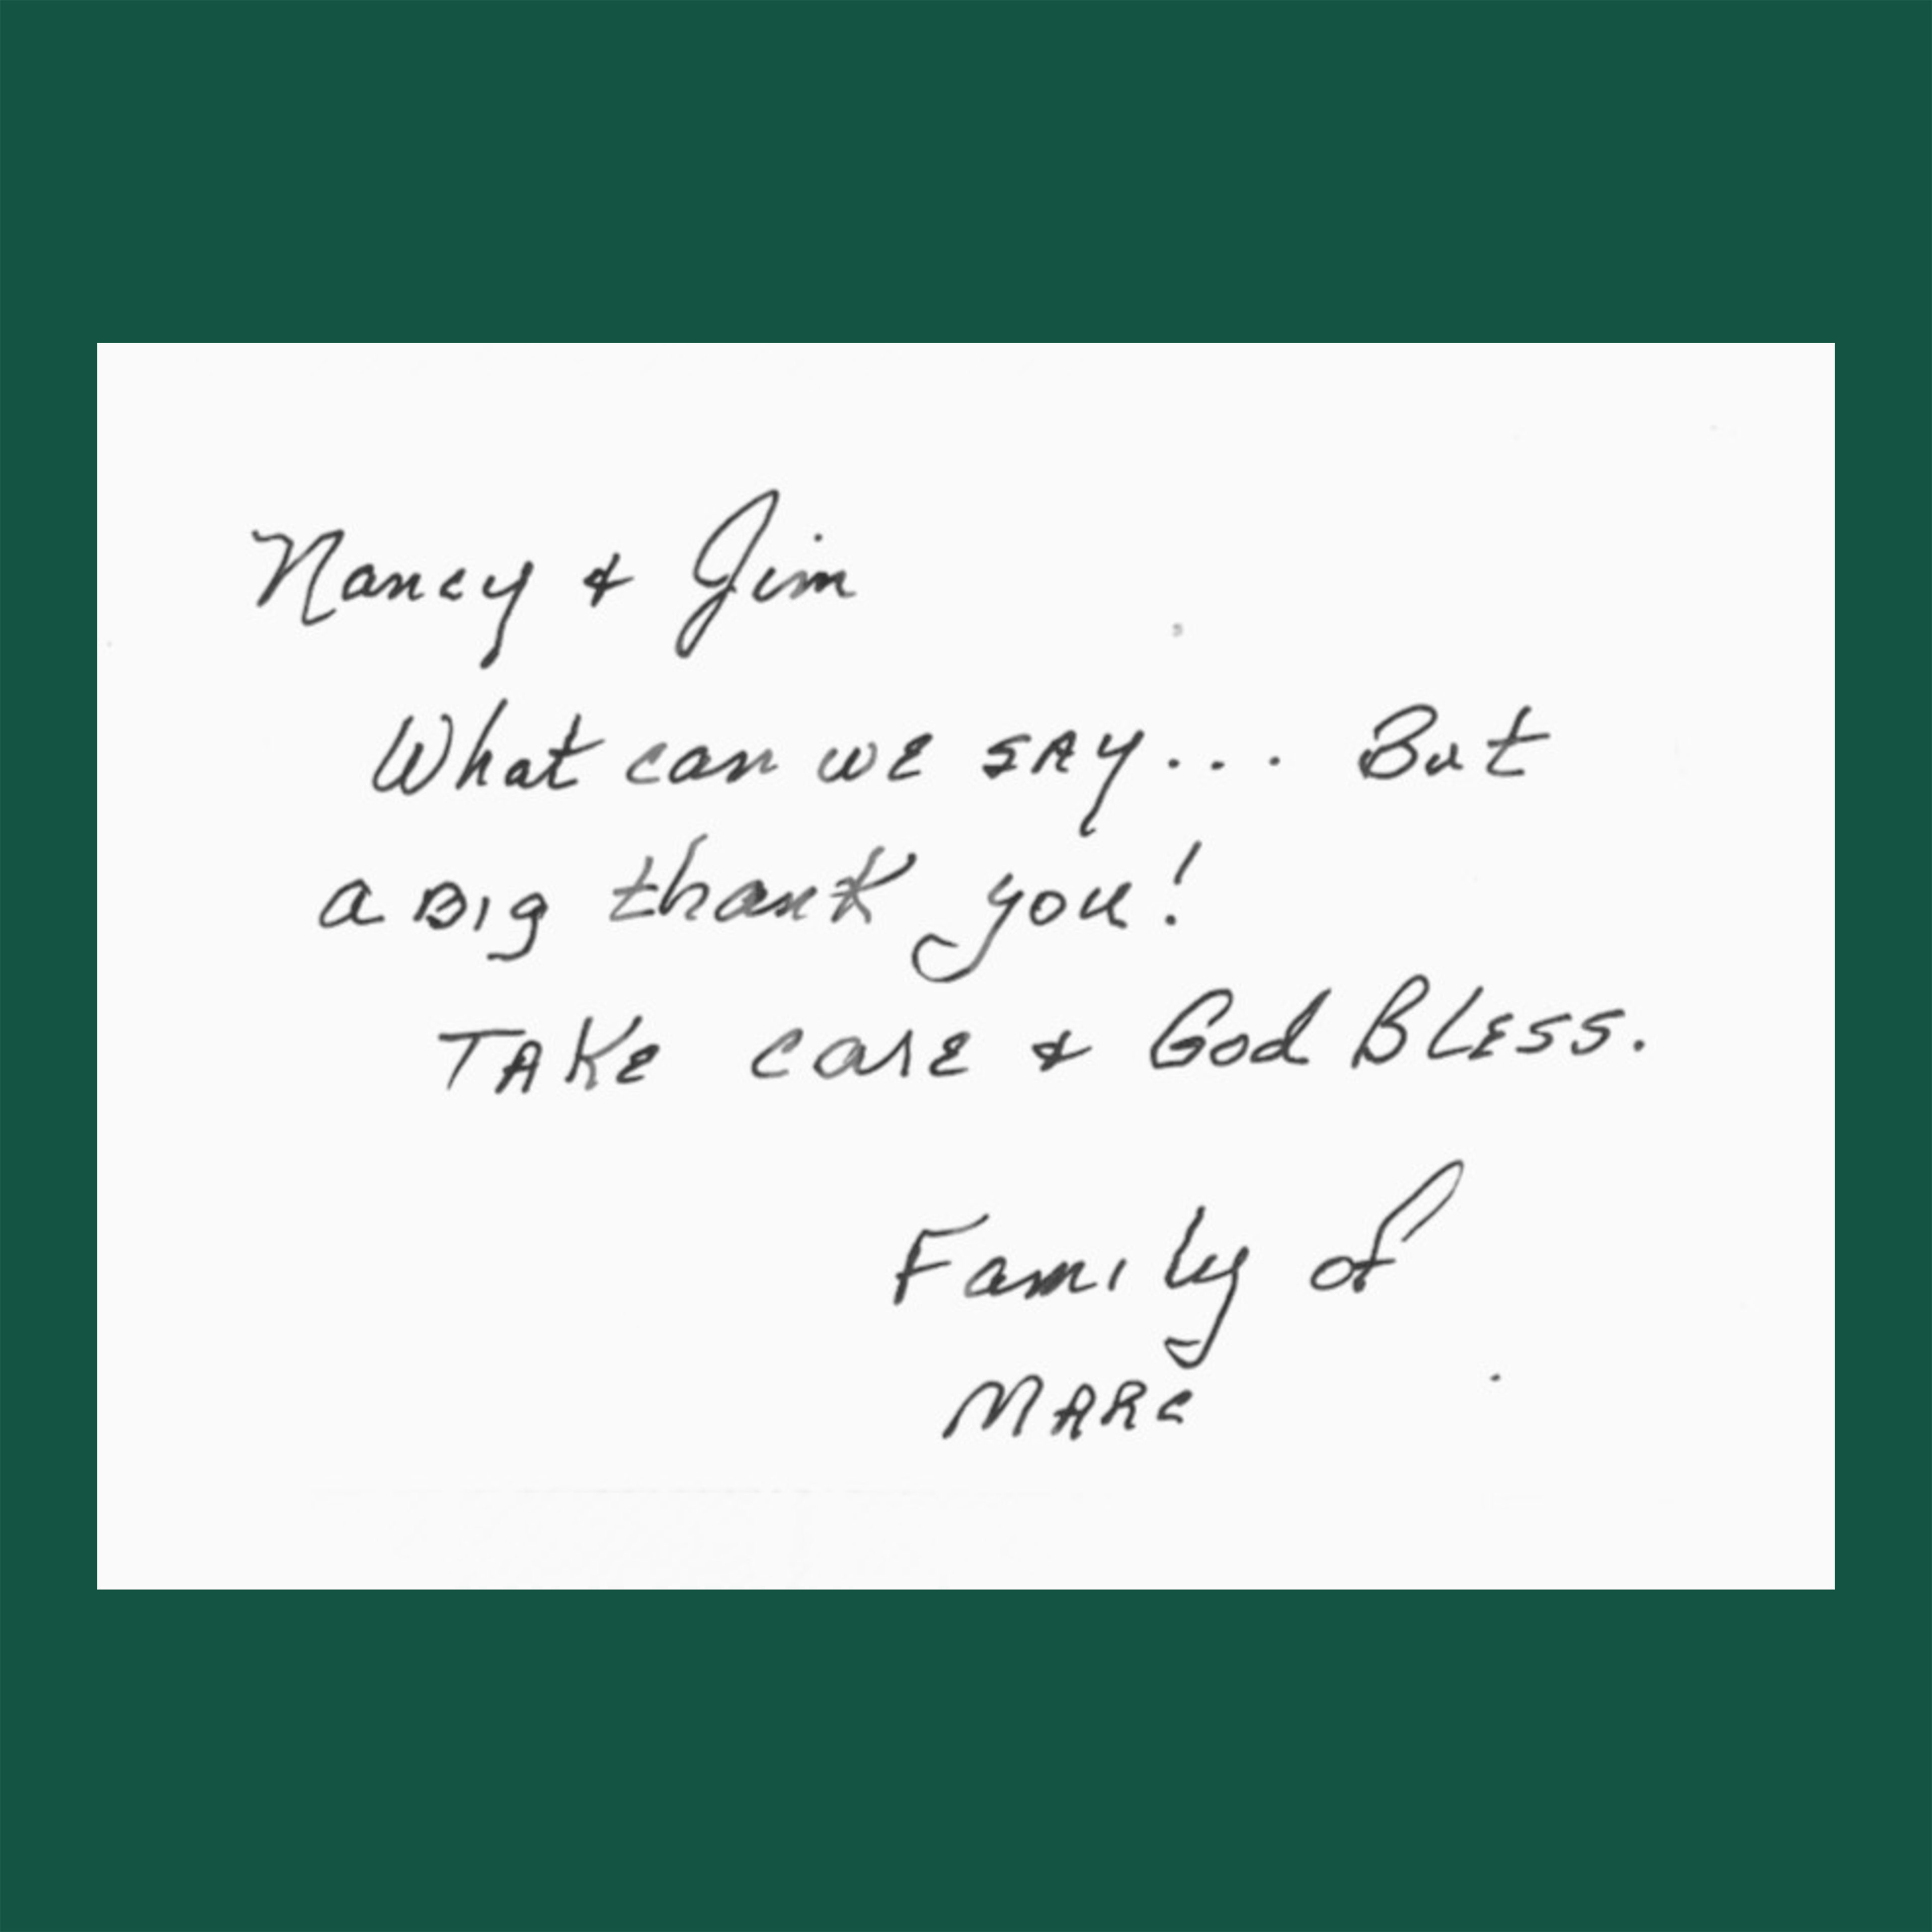 Nancy & Jim
What can we SAY... But
a Big thank you!
TAKE care & God BLESS.
Family of
MARC